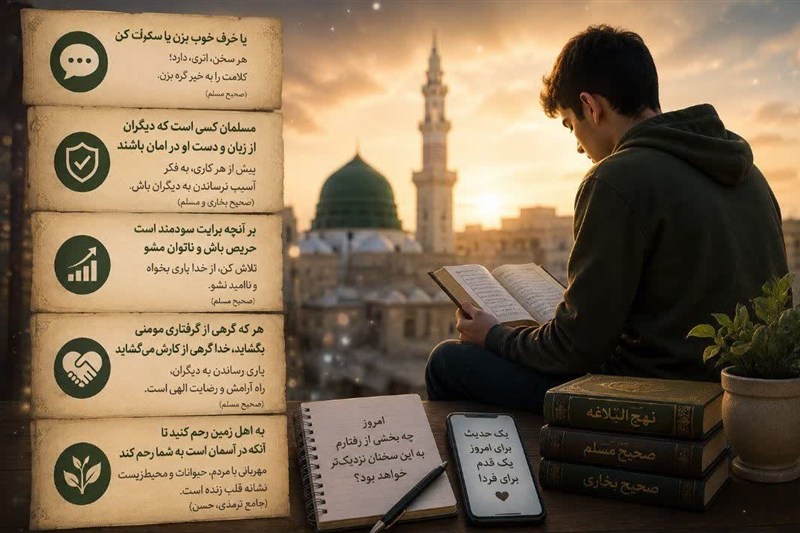 یا حرف خوب بزن یا سکوت کن
هر سخن، اثری، دارد؛
کلامت را به خیر گره بزن.
(صحیح مسلم)
مسلمان کسی است که دیگران
از زبان و دست او در امان باشند
پیش از هر کاری، به فکر
آسیب نرساندن به دیگران باش.
(صحیح بخاری و مسلم)
بر آنچه برایت سودمند است
حریص باش و ناتوان مشو
تلاش کن، از خدا یاری بخواه
و ناامید نشو.
(صحیح مسلم)
هر که گرهی از گرفتاری مومنی
بگشاید، خدا گرهی از کارش می‌گشاید
یاری رساندن به دیگران،
راه آرامش و رضایت الهی است.
(صحیح مسلم)
به اهل زمین رحم کنید تا
آنکه در آسمان است به شما رحم کند
مهربانی با مردم، حیوانات و محیط‌زیست
نشانه قلب زنده است.
(جامع ترمذی، حسن)
امروز
چه بخشی از رفتارم
به این سخنان نزدیک‌تر
خواهد بود؟
یک حدیث
برای امروز
یک قدم
برای فردا
نهج البلاغه
صحیح مسلم
صحیح بخاری